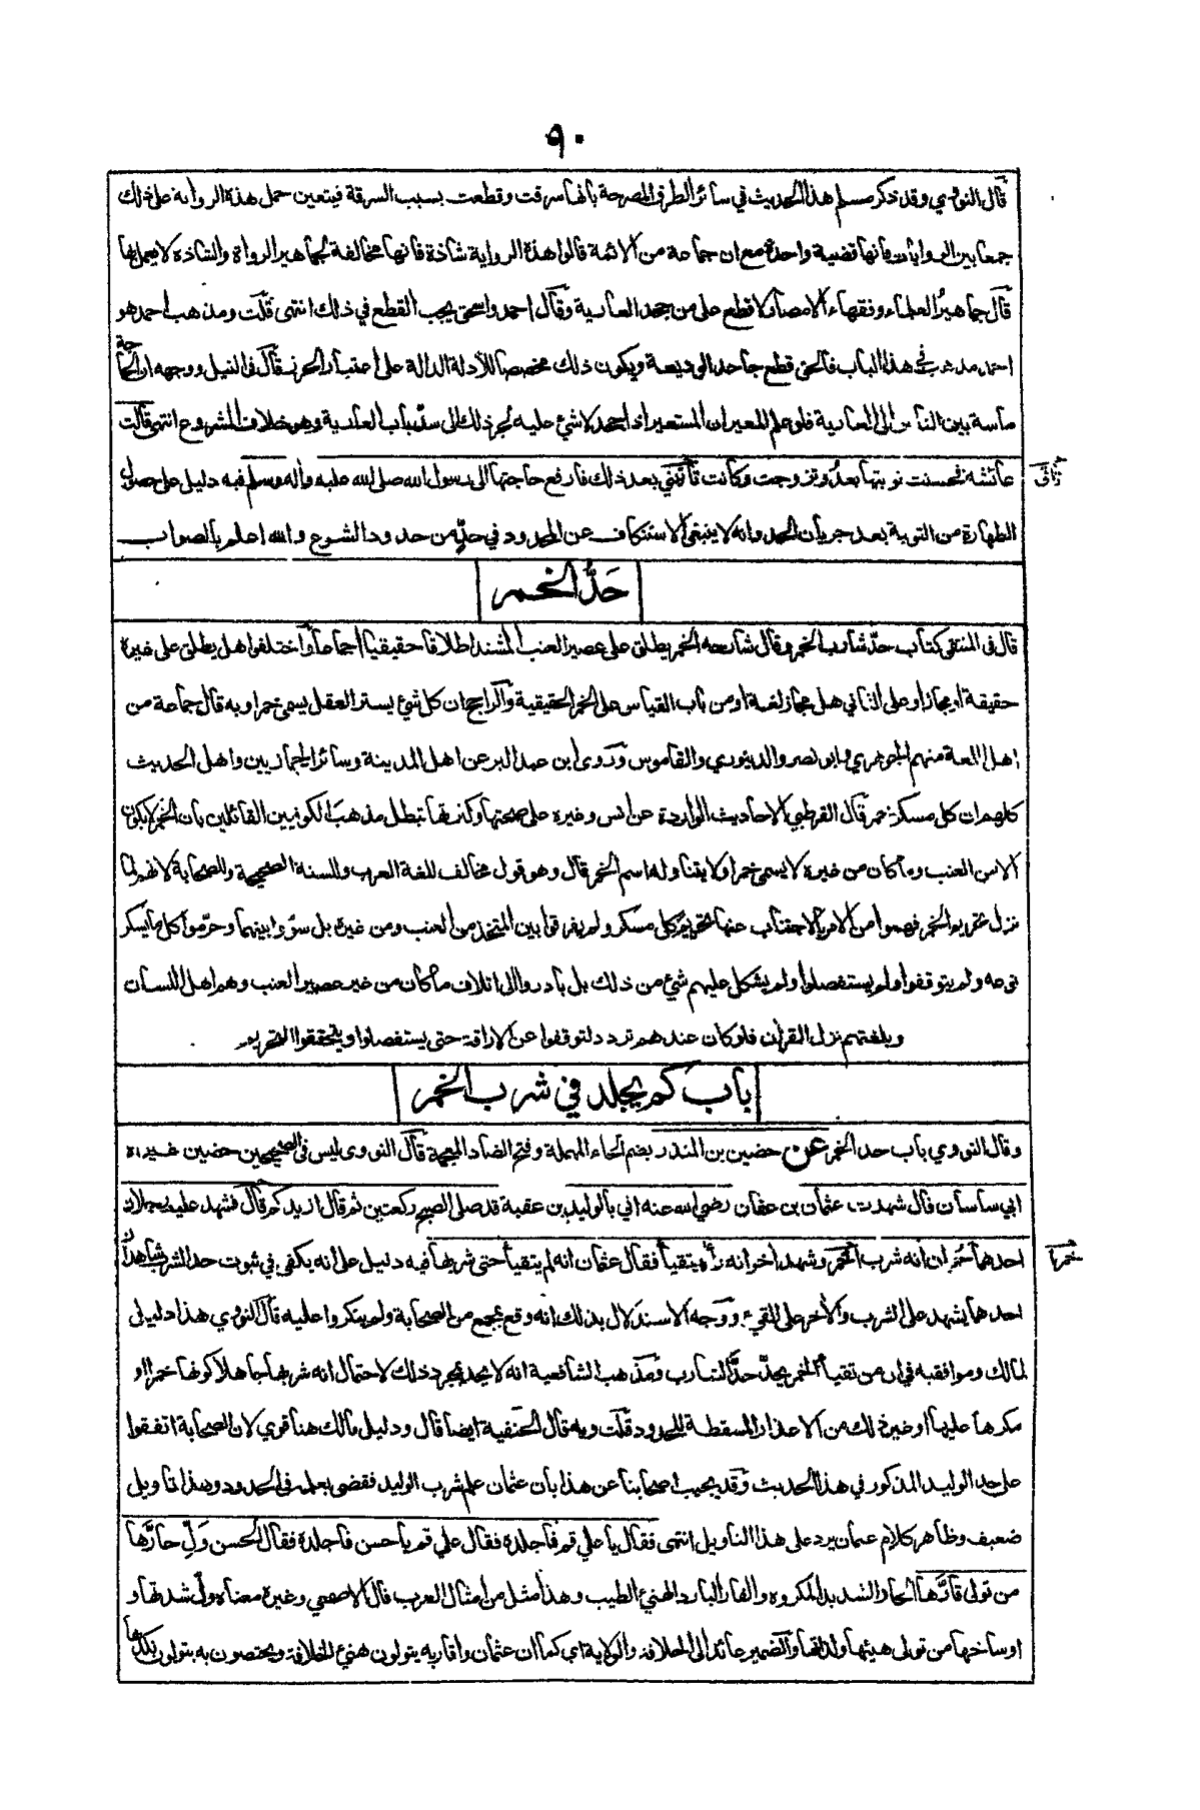 ٩٠
قال النووي وقد ذكر مسلم هذا الحديث في سائر الطرق المصرحة بانها سرقت وقطعت بسبب السرقة فيتعين حمل هذه الرواية على ذلك
جمعا بين الروايات فانها قضية واحدة مع ان جماعة من الائمة قالوا هذه الرواية شاذة فانها مخالفة لجماهير الرواة والشاذة لا يعمل بها
قال جماهير العلماء وفقهاء الامصار لا قطع على من جحد العارية وقال احمد واسحق يجب القطع في ذلك انتهى قلت ومذهب احمد هو
اعدل مذهب في هذا الباب فالحق قطع جاحد الوديعة ويكون ذلك مخصصا للأدلة الدالة على اعتبار الحرز قال في النيل ووجهه ان الحاجة
ماسة بين الناس الى العارية فلو علم المعير ان المستعير اذا جحد لا شئ عليه لجر ذلك الى سد باب العارية وهو خلاف المشروع انتهى قالت
عائشة فحسنت توبتها بعد وتزوجت وكانت تأتيني بعد ذلك فارفع حاجتها الى رسول الله صلى الله عليه وآله وسلم فيه دليل على حصول
تاتي
الطهارة من التوبة بعد جريان الحد وانه لا ينبغي الاستنكاف عن المحدود في حد من حدود الشرع والله اعلم بالصواب
حَدُّ الخمر
قال في المنتقى كتاب حد شارب الخمر وقال شارحه الخمر يطلق على عصير العنب المشتد اطلاقا حقيقيا اجماعا واختلفوا هل يطلق على غيره
حقيقة او مجازا وعلى الثاني هل مجاز لغة او من باب القياس على الخمر الحقيقية والراجح ان كل شئ يستر العقل يسمى خمرا وبه قال جماعة من
اهل اللغة منهم الجوهري وابو نصر والدينوري والقاموس وروى ابن عبد البر عن اهل المدينة وسائر الحجازيين واهل الحديث
كلهم ان كل مسكر خمر قال القرطبي الاحاديث الواردة عن انس وغيره على صحتها وكثرتها تبطل مذهب الكوفيين القائلين بان الخمر لا يكون
الا من العنب وما كان من غيره لا يسمى خمرا ولا يتناوله اسم الخمر قال وهو قول مخالف للغة العرب وللسنة الصحيحة وللصحابة لانهم لما
نزل تحريم الخمر فهموا من الامر بالاجتناب عنها تحريم كل مسكر ولم يفرقوا بين المتخذ من العنب ومن غيره بل سووا بينهما وحرموا كل ما يسكر
نوعه ولم يتوقفوا ولم يستفصلوا ولم يشكل عليهم شئ من ذلك بل بادروا الى اتلاف ما كان من غير عصير العنب وهم اهل اللسان
وبلغتهم نزل القرآن فلو كان عندهم تردد لتوقفوا عن الاراقة حتى يستفصلوا ويتحققوا التحريم
باب كم يجلد في شرب الخمر
وقال النووي باب حد الخمر عن حضين بن المنذر بضم الحاء المهملة وفتح الضاد المعجمة قال النووي ليس في الصحيحين حضين غيره
ابي ساسان قال شهدت عثمان بن عفان رضي الله عنه اتي بالوليد بن عقبة قد صلى الصبح ركعتين ثم قال ازيدكم قال فشهد عليه رجلان
احدهما حمران انه شرب الخمر وشهد اخر انه رآه يتقيأ فقال عثمان انه لم يتقيأ حتى شربها فيه دليل على انه يكفي في ثبوت حد الشرب شاهدان
خمرا
احدهما يشهد على الشرب والآخر على القيء ووجه الاستدلال بذلك انه وقع بمجمع من الصحابة ولم ينكروا عليه قال النووي هذا دليل
لمالك وموافقيه في ان من تقيأ الخمر يحد حد الشارب ومذهب الشافعية انه لا يحد بمجرد ذلك لاحتمال انه شربها جاهلا كونها خمرا او
مكرها عليها او غير ذلك من الاعذار المسقطة للحدود قلت وبه قال الحنفية ايضا قال ودليل مالك هنا قوي لان الصحابة اتفقوا
على جلد الوليد المذكور في هذا الحديث وقد يجيب اصحابنا عن هذا بان عثمان علم شرب الوليد فقضى بعلمه في الحدود وهذا تاويل
ضعيف وظاهر كلام عثمان يرد على هذا التاويل انتهى فقال يا علي قم فاجلده فقال علي قم يا حسن فاجلده فقال الحسن وَلِّ حارَّها
من تولى قارَّها الحار الشديد المكروه والقار البارد الهنيئ الطيب وهذا مثل من امثال العرب قال الاصمعي وغيره معناه ول شدتها و
اوساخها من تولى هنيئها ولذاتها والضمير عائد الى الخلافة والولاية اي كما ان عثمان واقاربه يتولون هنيئ الخلافة ويختصون به يتولون نكدها